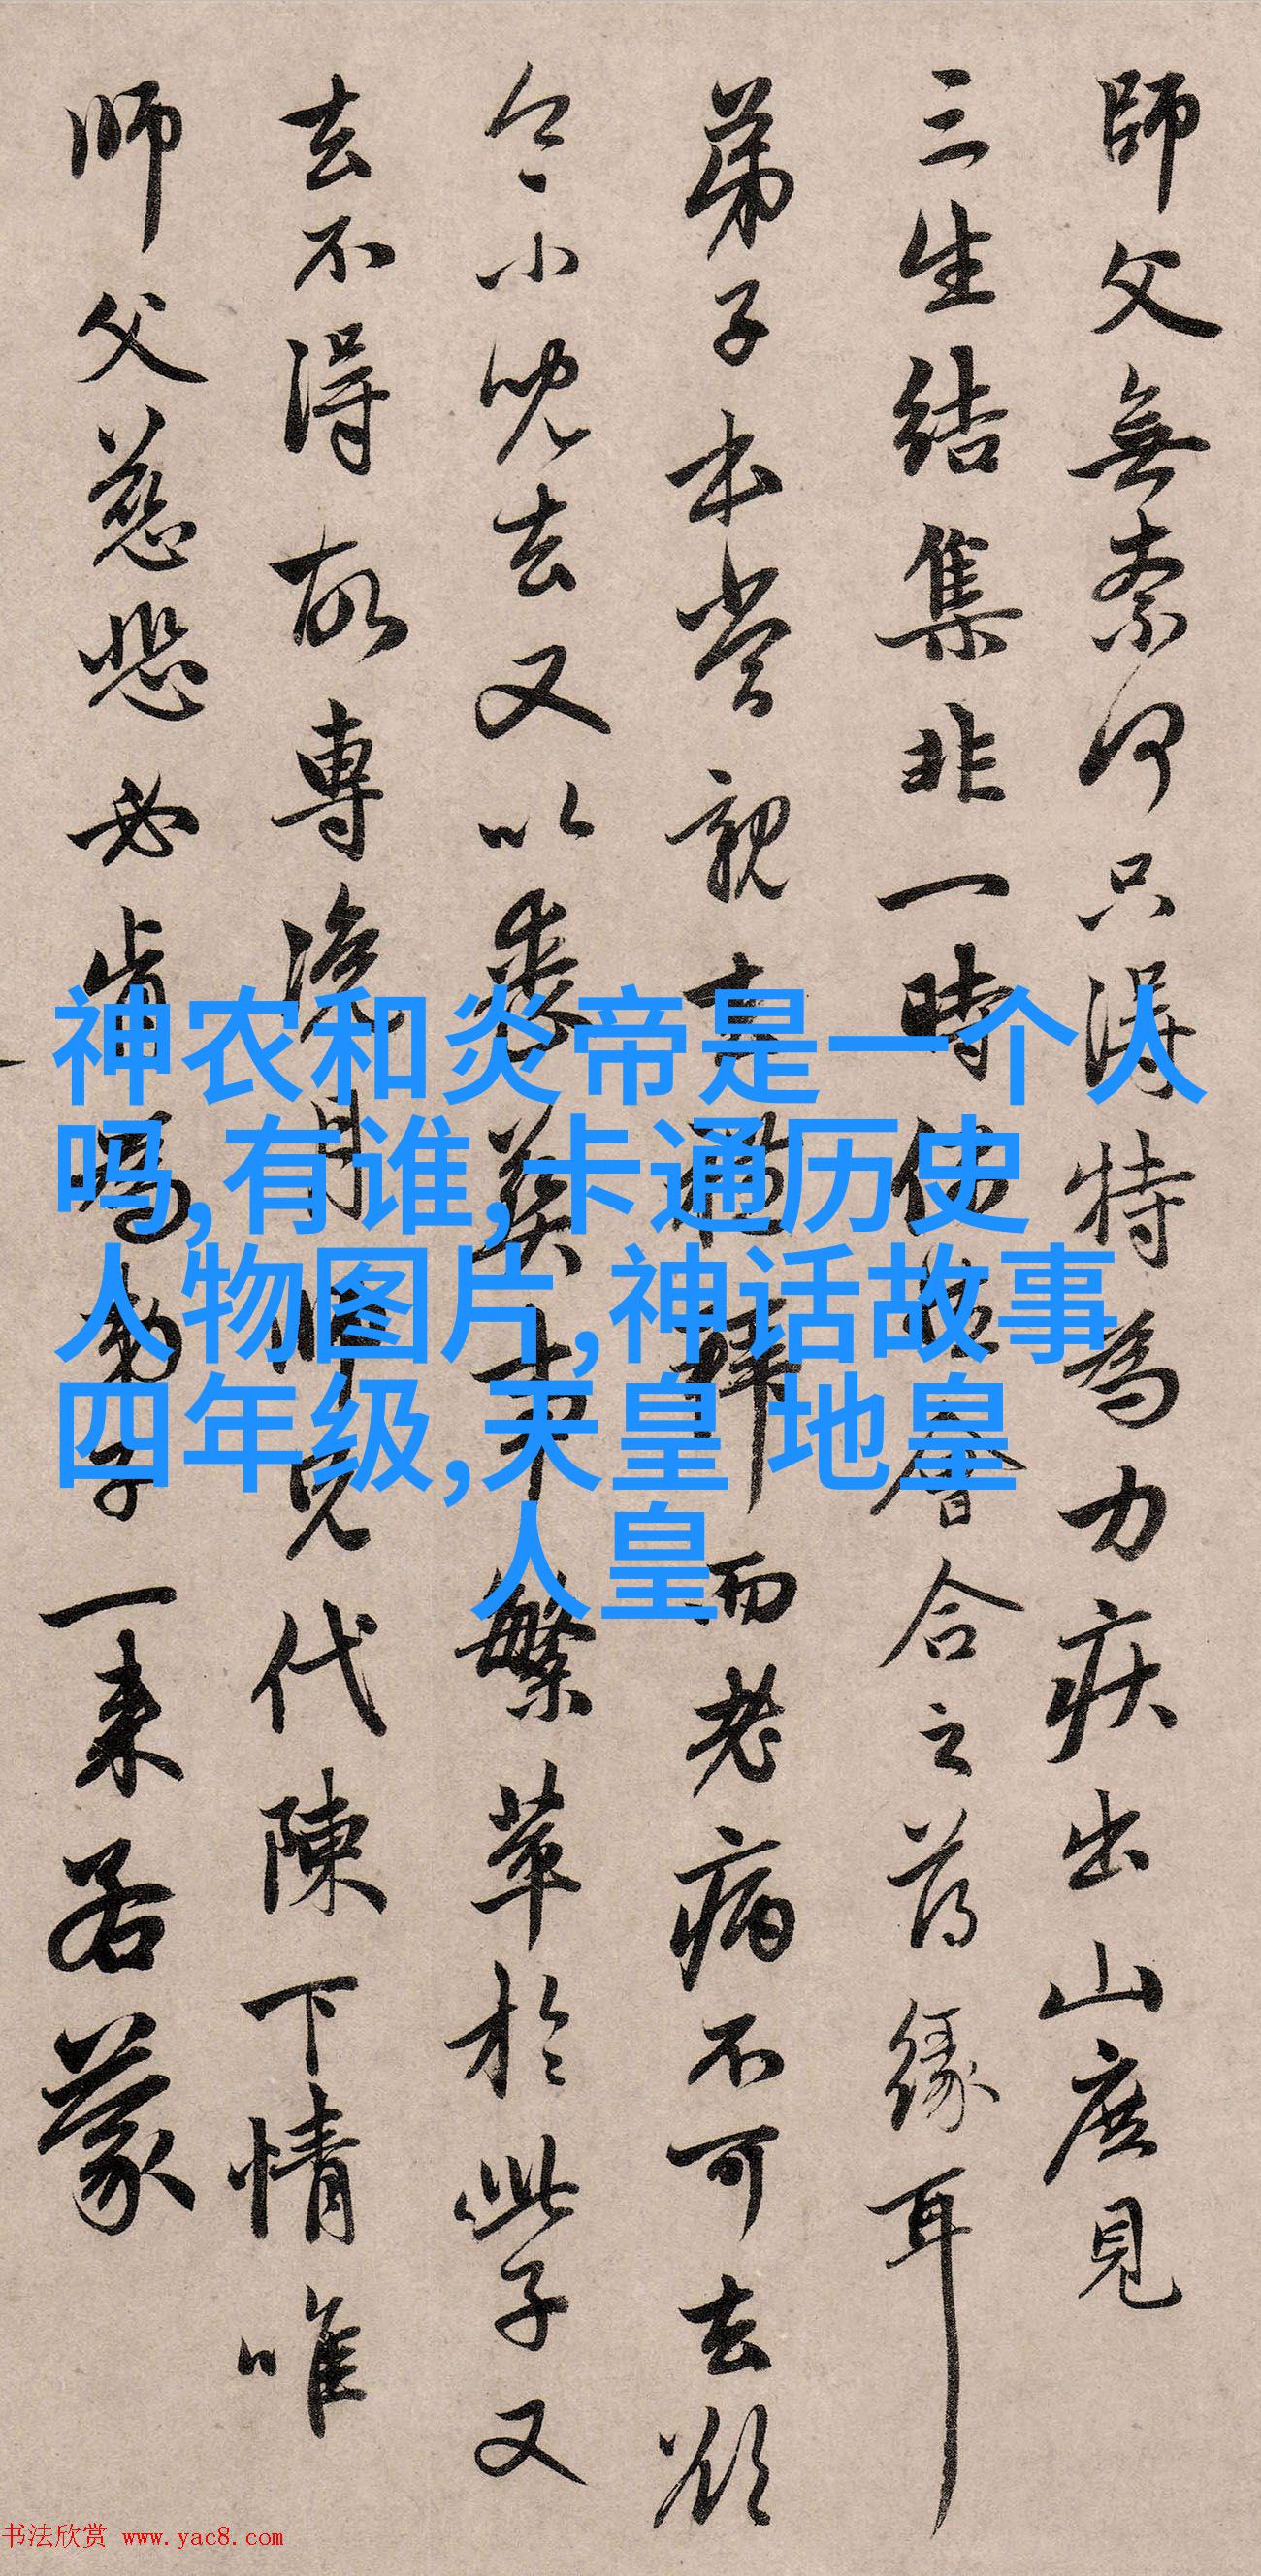 師父無奈何只得特為力疾出山庶見
三生結集非一時
合之前緣耳
弟子本當親
而老病不可去欲
令小兒去又以
繁華於此子又
去不得故專
代陳下情唯
師父慈悲必肯
一來若蒙
神农和炎帝是一个人
吗,有谁,卡通历史
人物图片,神话故事
四年级,天皇 地皇
人皇
书法欣赏 www.yac8.com